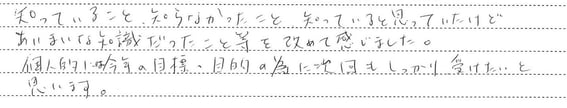 知っていること 知らなかったこと 知っていると思っていたけど
あいまいな知識だったこと等を改めて感じました。
個人的には今年の目標・目的の為に次回もしっかり受けたいと
思います。